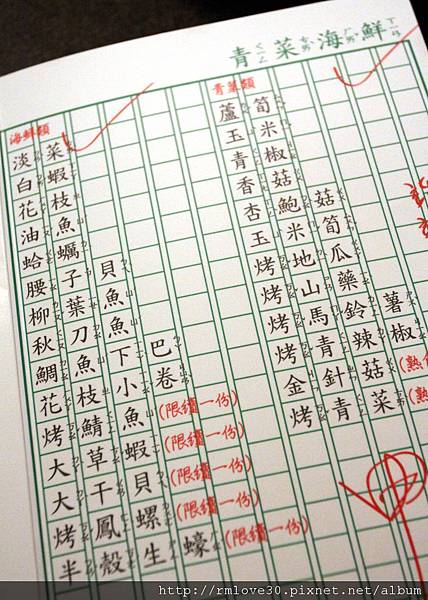 青菜海鮮
海鮮類
淡菜
白蝦
花枝
油魚
蛤蠣
腰子貝
柳葉魚
秋刀魚
鯛魚下巴
花枝小卷
烤鯖魚(限續一份)
大草蝦(限續一份)
大干貝(限續一份)
烤鳳螺(限續一份)
半殼生蠔(限續一份)
青菜類
蘆筍
玉米
青椒
香菇
杏鮑菇
玉米筍
烤地瓜
烤山藥
烤馬鈴薯
烤青辣椒
金針菇(熟
烤青菜(熟
http://rmlove30.pixnet.net/album